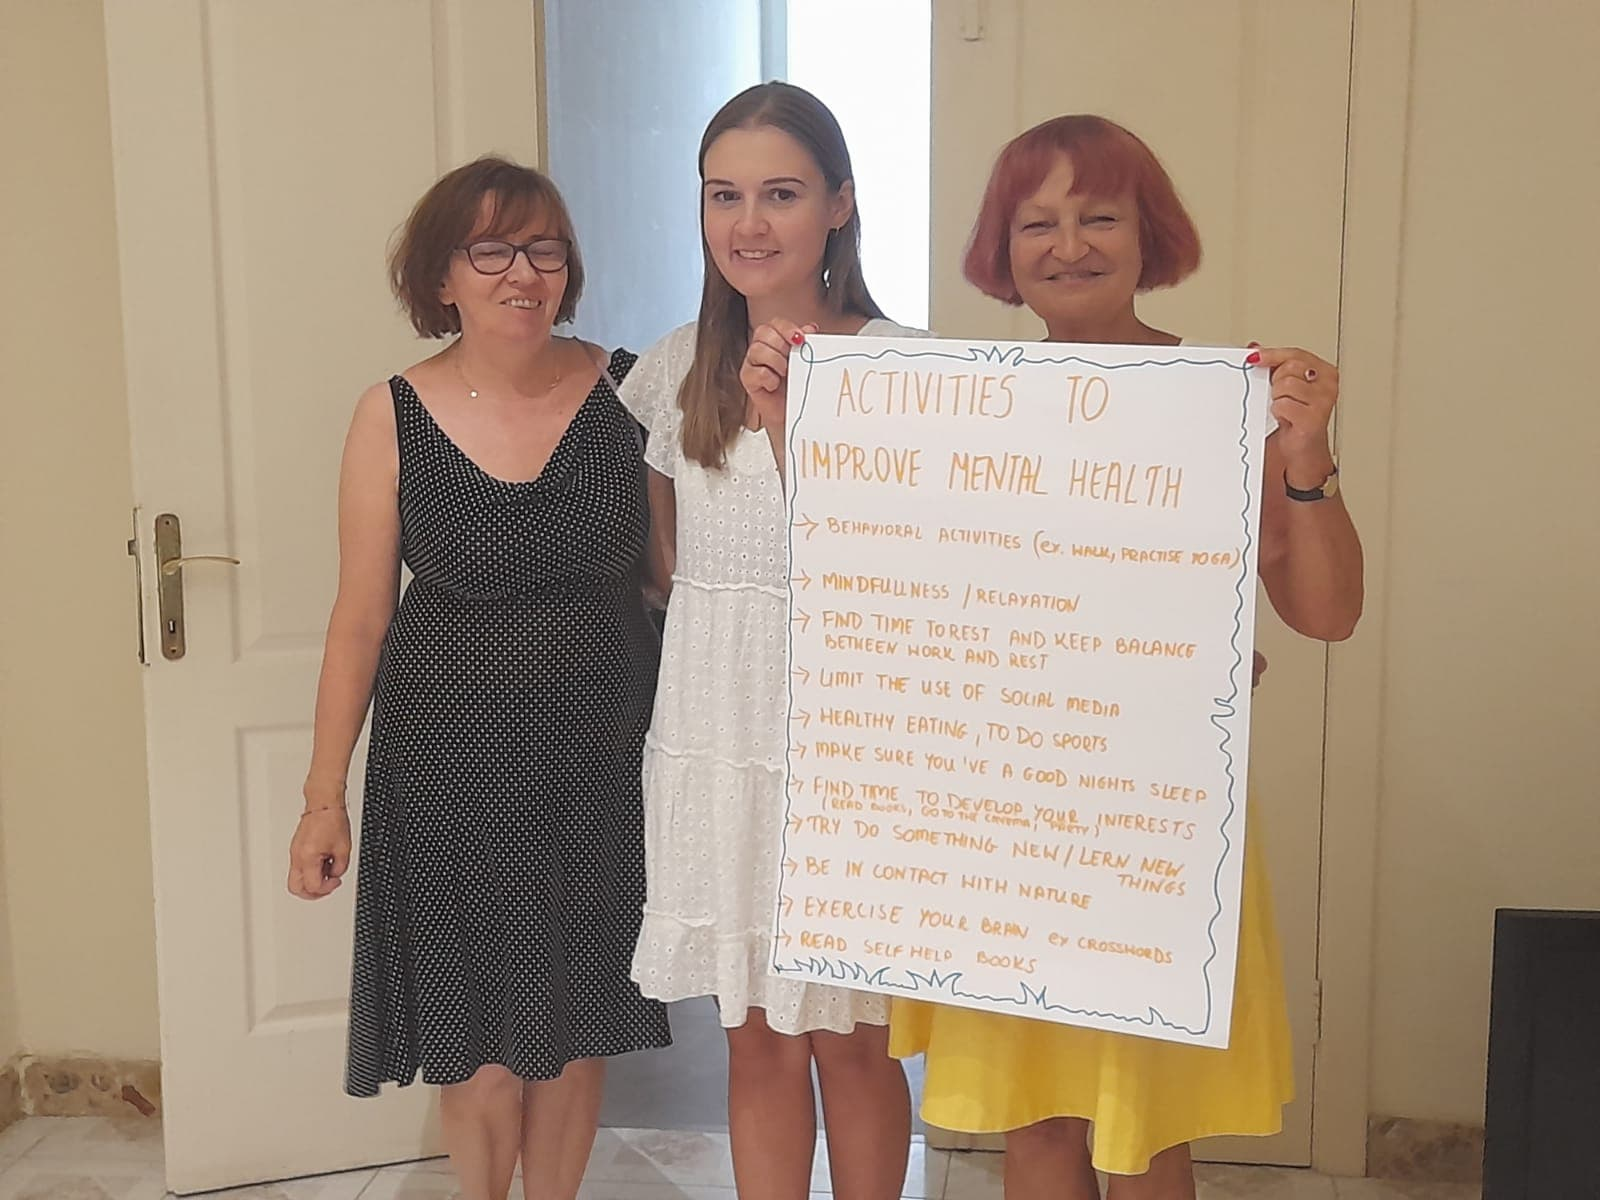 ACTIVITIES TO
IMPROVE MENTAL HEALTH
→ BEHAVIORAL ACTIVITIES (ex. WALK, PRACTISE YOGA)
→ MINDFULLNESS / RELAXATION
→ FIND TIME TO REST AND KEEP BALANCE
BETWEEN WORK AND REST
→ LIMIT THE USE OF SOCIAL MEDIA
→ HEALTHY EATING, TO DO SPORTS
→ MAKE SURE YOU'VE A GOOD NIGHTS SLEEP
→ FIND TIME TO DEVELOP YOUR INTERESTS
(READ BOOKS, GO TO THE CINEMA, PARTY)
→ TRY DO SOMETHING NEW / LERN NEW
THINGS
→ BE IN CONTACT WITH NATURE
→ EXERCISE YOUR BRAIN ex CROSSWORDS
→ READ SELF HELP BOOKS